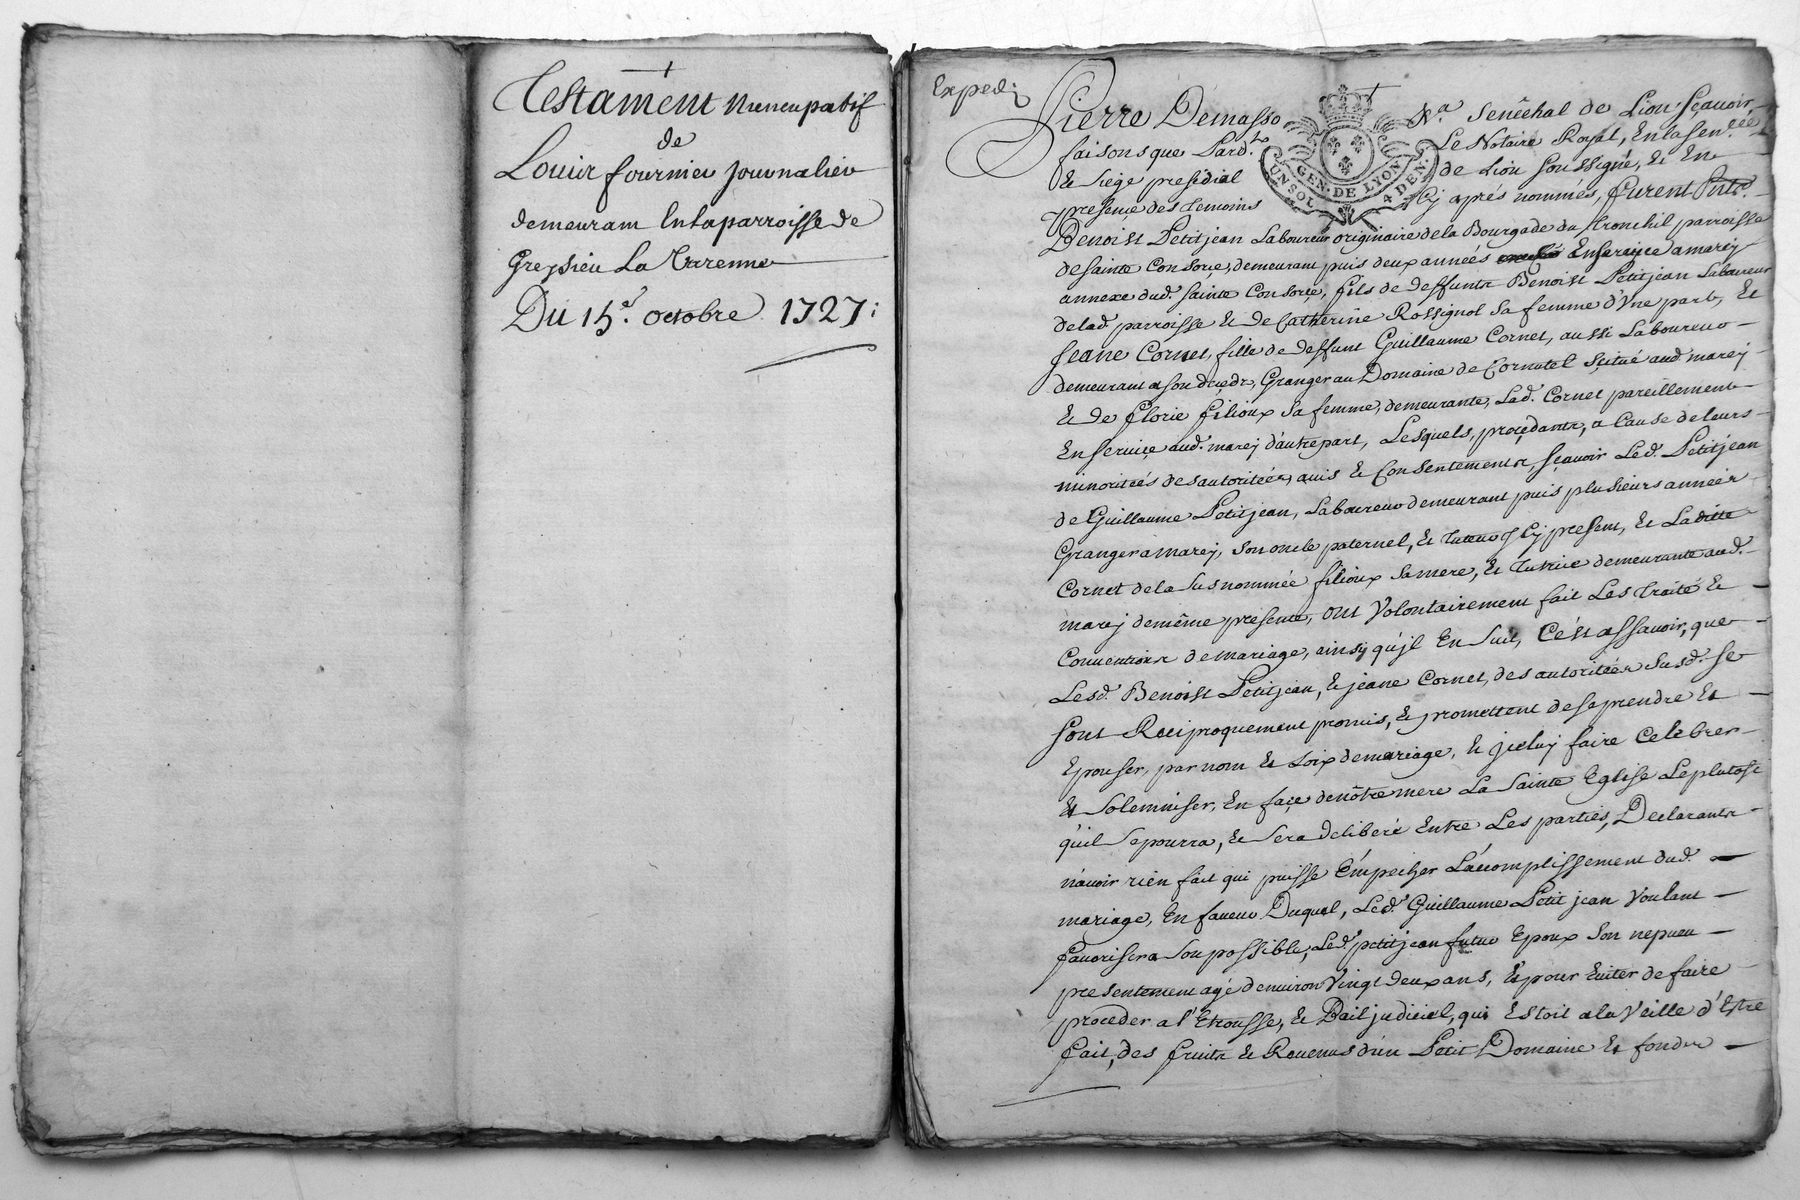 Testament nuncupatif
de
Louis fournier journalier
demeurant En la parroisse de
Grezieu La Varenne
Du 15e. octobre 1727:
Exped:
Pierre Demasso Na. Senéchal de Lion sçavoir
faisons que Pard.t Le Notaire Royal, En la Sen.cée
& Siége presidial de Lion Soussigné, & En
presençe des temoins Cy aprés nommés, furent
Benoist Petitjean Laboureur originaire de la Bourgade du tronchil parroisse
de sainte Consorçe, demeurant puis deux années En serviçe a marcy
annexe dud. sainte Consorçe, fils de deffunts Benoist Petitjean Laboureur
de lad. parroisse & de Catherine Rossignol sa femme d'Vne part, Et
Jeane Cornet, fille de deffunt Guillaume Cornet, aussi Laboureur
demeurant a son deçedz, Granger au Domaine de Cornatel scitué aud. marcy
& de florie filioux sa femme, demeurante, Lad. Cornet pareillement
En serviçe aud. marcy d'autre part, Lesquels, proçedants, a Cause de leurs
minoritéés des autoritéés, avis & Consentements, sçavoir Led. Petitjean
de Guillaume Petitjean, Laboureur demeurant puis plusieurs années
Granger a marcy, son oncle paternel, & tuteur Cy present, Et Laditte
Cornet de la susnommée filioux sa mere, & tutrice demeurante aud.
marcy de même presente, ont Volontairement fait Les traité &
Conventions de mariage, ainsy qu'jl En Suit, C'ést assavoir, que
Lesd. Benoist Petitjean, & jeane Cornet, des autoritéés susd. se
sont Reciproquement promis, & promettent de se prendre Et
Epouser, par nom & Loix de mariage, & jceluy faire Celebrer
Et Solemniser, En façe de nôtre mere La Sainte Eglise Le plutost
qu'il se pourra, & sera deliberé Entre Les parties, Declarants
n'avoir rien fait qui puisse Empecher L'acomplissement dud.
mariage, En faveur Duquel, Led. Guillaume Petit jean Voulant
favoriser a son possible, Led. petitjean futur Epoux son nepveu
presentement agé d'environ Vingt deux ans, & pour Eviter de faire
proceder a l'Etrousse, & Bail judiciel, qui Estoit a la Veille d'Estre
fait, des fruits & Revenus d'un Petit Domaine Et fonds
GEN. DE LYON
UN SOL 4 DEN.